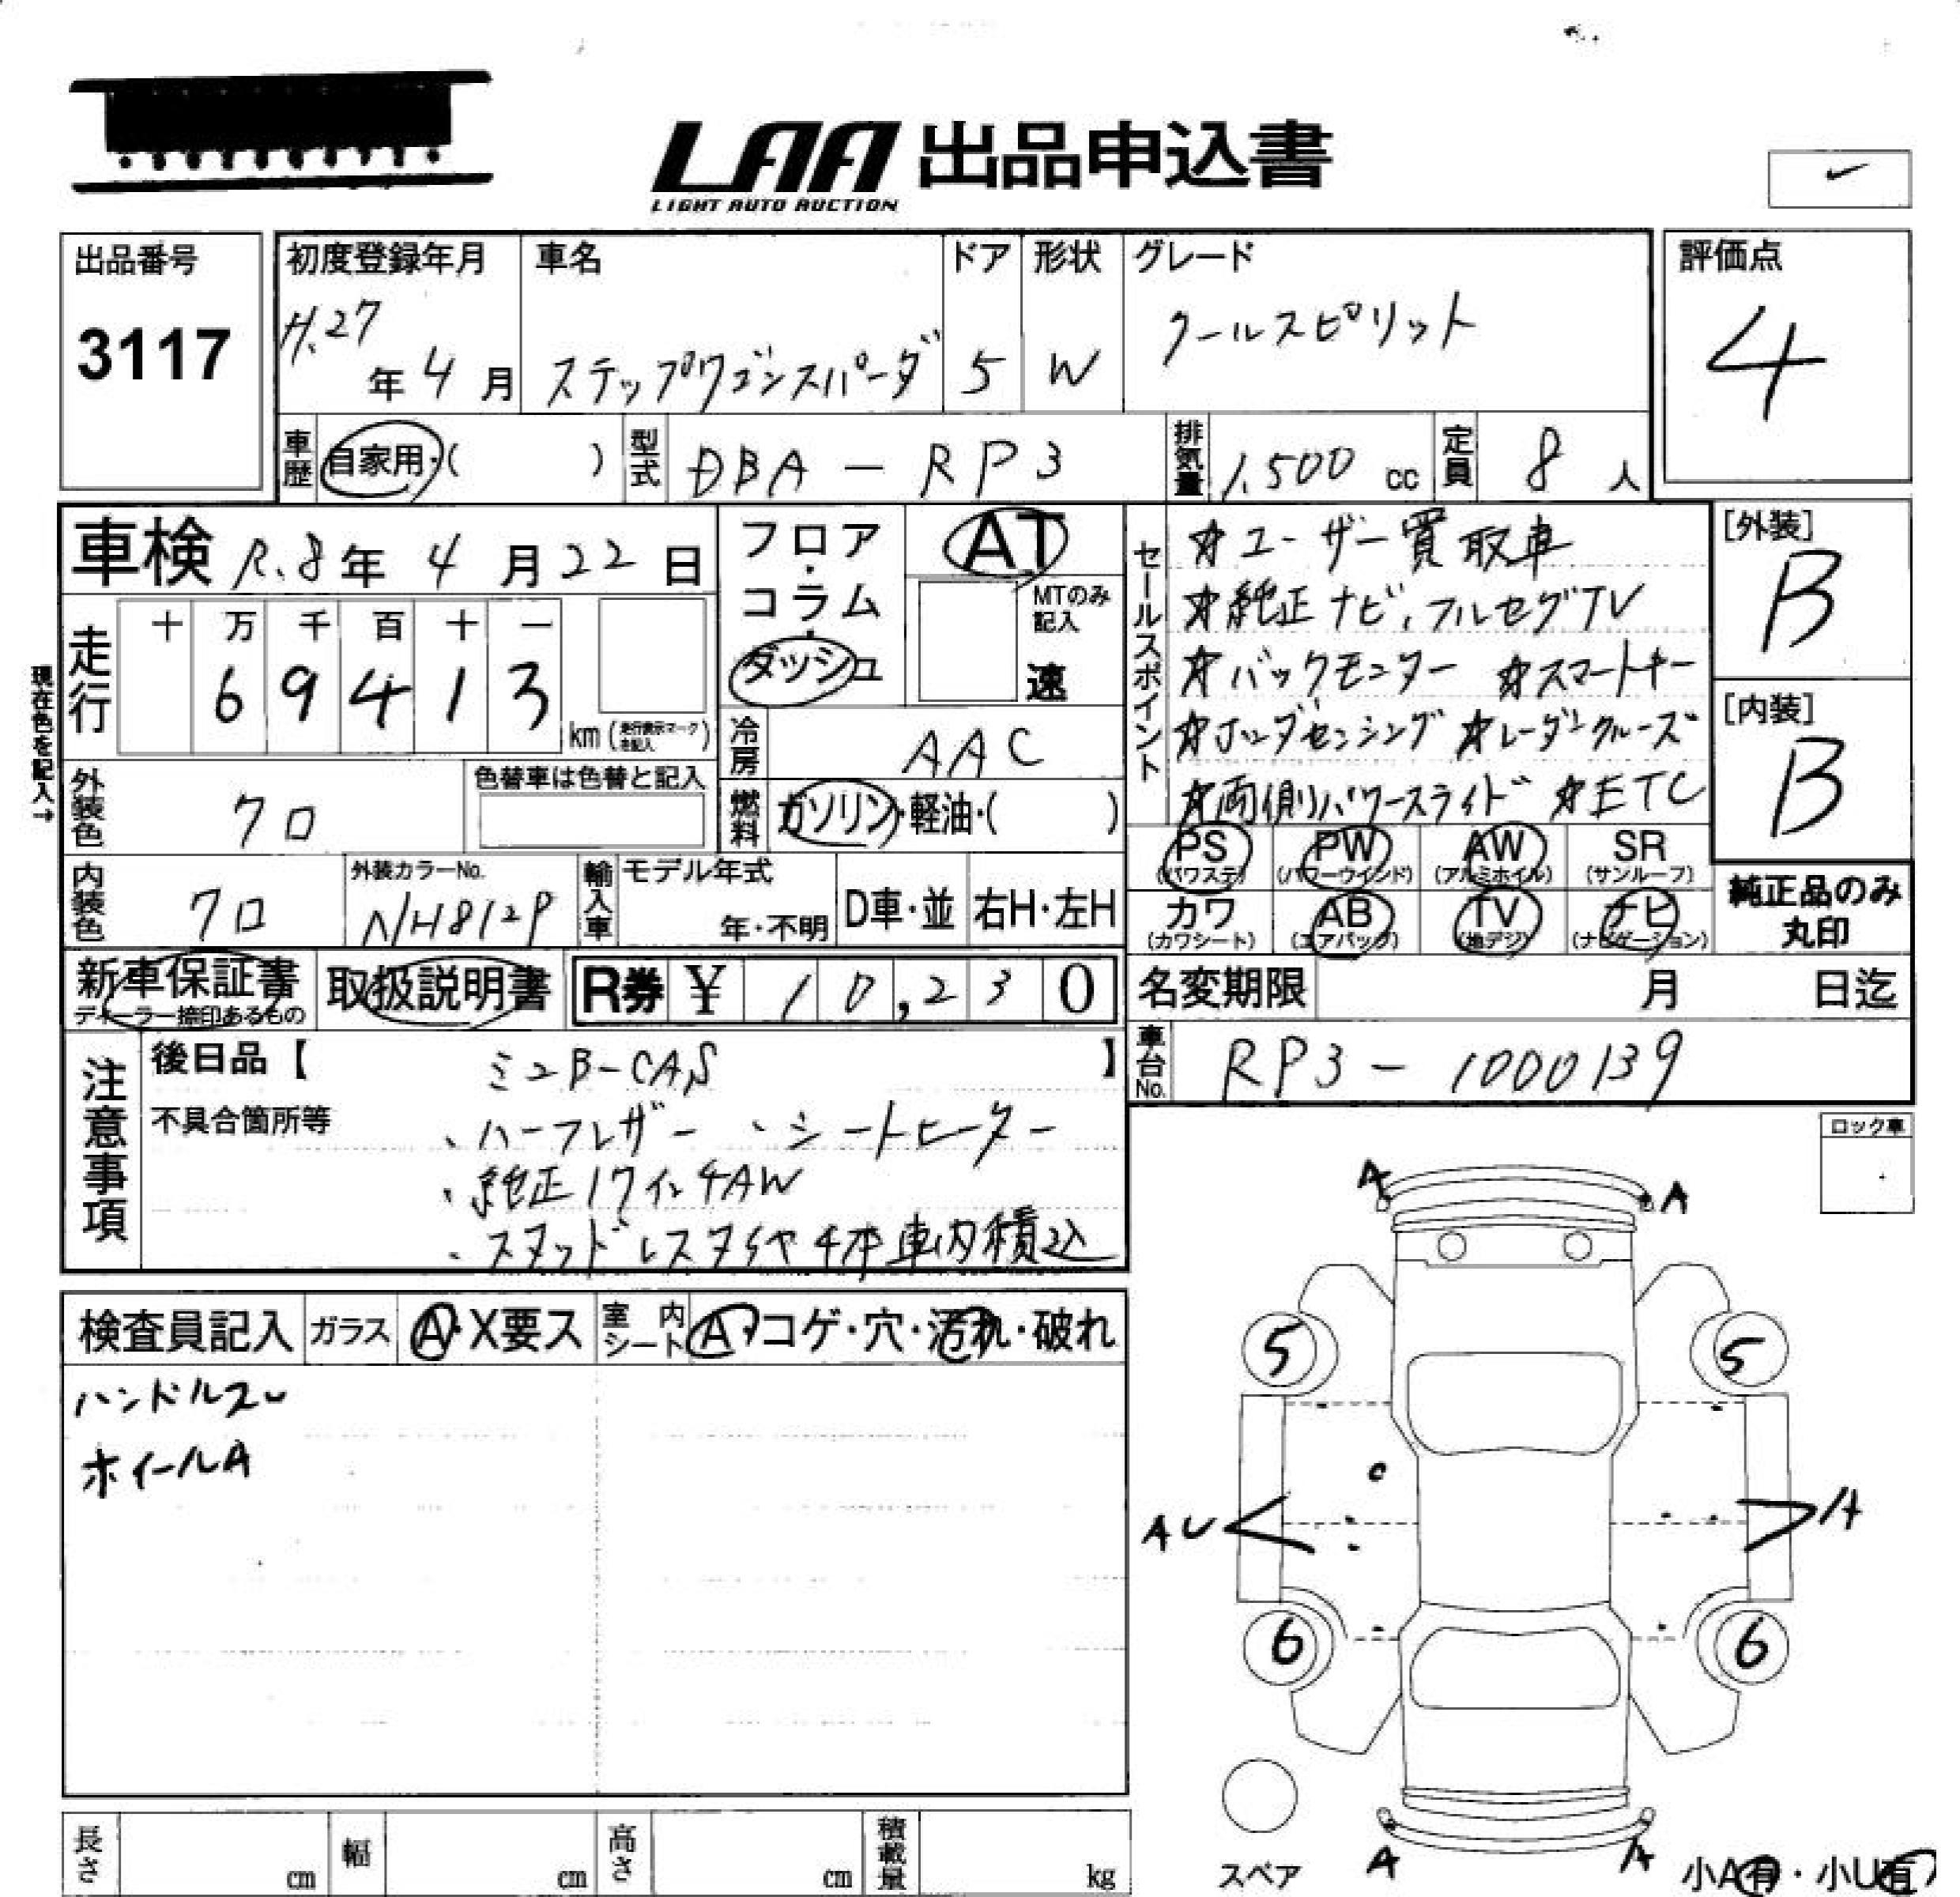 LAA 出品申込書
LIGHT AUTO AUCTION
出品番号
3117
初度登録年月
H.27
年 4 月
車名
ステップワゴンスパーダ
ドア
5
形状
W
グレード
クールスピリット
評価点
4
車歴
自家用・( )
型式
DBA-RP3
排気量
1,500 cc
定員
8 人
車検 R.8年 4月22日
フロア・コラム・ダッシュ
AT
MTのみ記入
速
セールスポイント
☆ユーザー買取車
☆純正ナビ、フルセグTV
☆バックモニター ☆スマートキー
☆ホンダセンシング ☆レーダークルーズ
☆両側パワースライド ☆ETC
[外装]
B
[内装]
B
現在色を記入→
走行
十 万 千 百 十 一
6 9 4 1 3
km (走行表示マークを記入)
冷房
AAC
外装色
クロ
色替車は色替と記入
燃料
ガソリン・軽油・( )
PS (パワステ) PW (パワーウインド) AW (アルミホイル) SR (サンルーフ)
カワ (カワシート) AB (エアバッグ) TV (地デジ) ナビ (ナビゲーション)
純正品のみ丸印
内装色
クロ
外装カラーNo.
NH812P
輸入車
モデル年式
年・不明
D車・並
右H・左H
新車保証書
ディーラー捺印あるもの
取扱説明書
R券 ¥ 10,230
名変期限 月 日迄
車台No.
RP3-1000139
注意事項
後日品【 ミニB-CAS 】
不具合箇所等
・ハーフレザー ・シートヒーター
・純正17インチAW
・スタッドレスタイヤ4本車内積込
ロック車
検査員記入
ガラス
A・X要ス
室内シート
A・コゲ・穴・汚れ・破れ
ハンドルスレ
ホイールA
A A
5 5
AU A
6 6
A A
スペア
小A有・小U有
長さ cm
幅 cm
高さ cm
積載量 kg